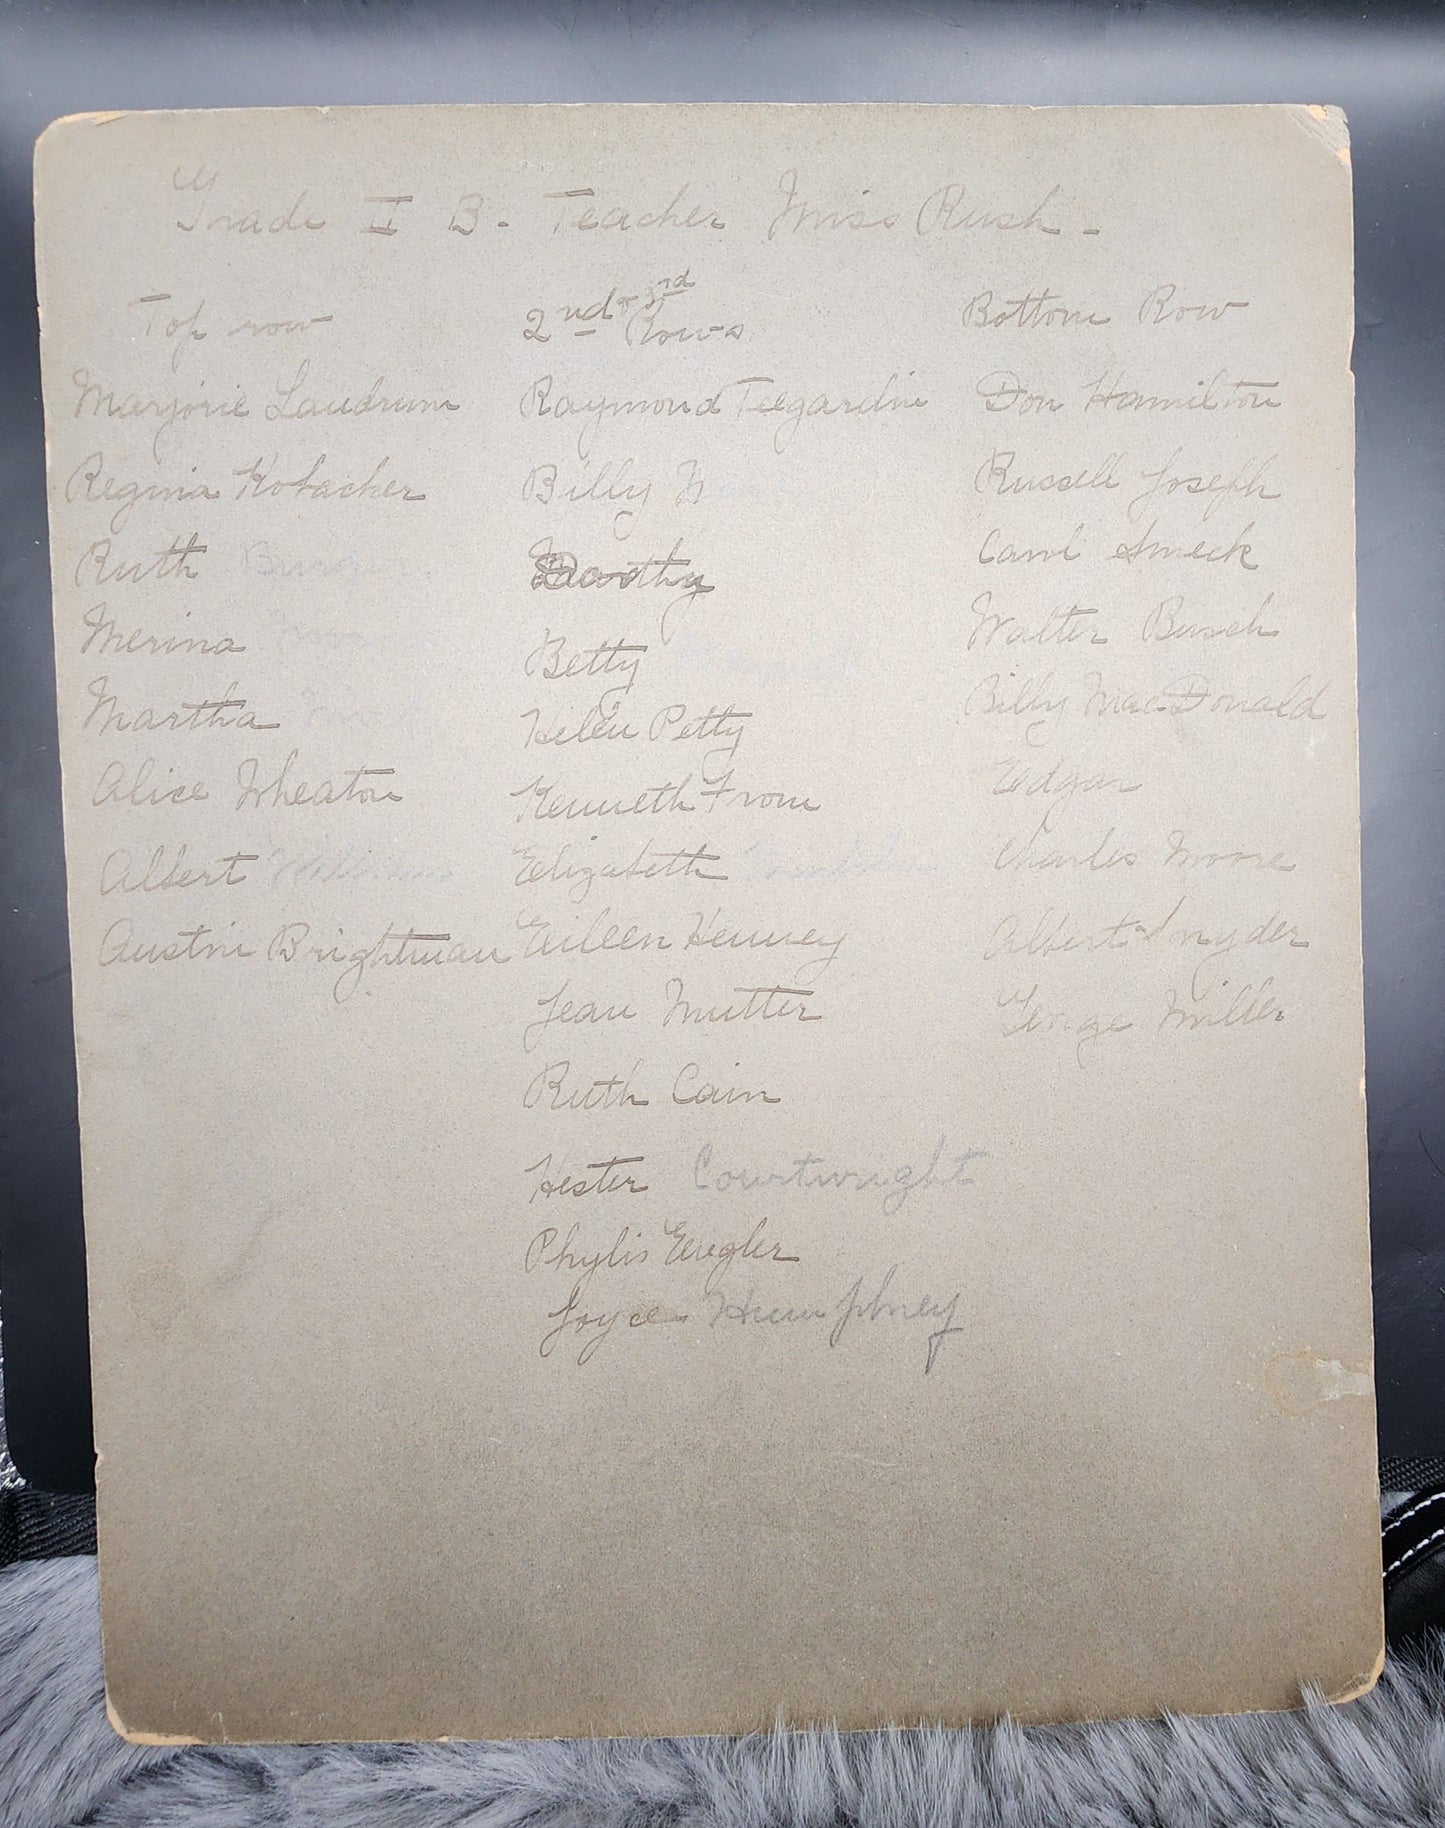 Grade II B. Teacher Miss Rush -
Top row
Marjorie Landrum
Regina Kobacker
Ruth
Merina
Martha
Alice Wheaton
Albert
Austin Brightman
2nd + 3rd Rows
Raymond Teegardin
Billy
Dorothy
Betty
Helen Petty
Kenneth From
Elizabeth
Eileen Henney
Jean Mutter
Ruth Cain
Hester Courtwright
Phylis Engler
Joyce Humphney
Bottom Row
Don Hamilton
Russell Joseph
Carol Smeck
Walter Busch
Billy MacDonald
Edgar
Charles Moore
Albert Snyder
George Miller